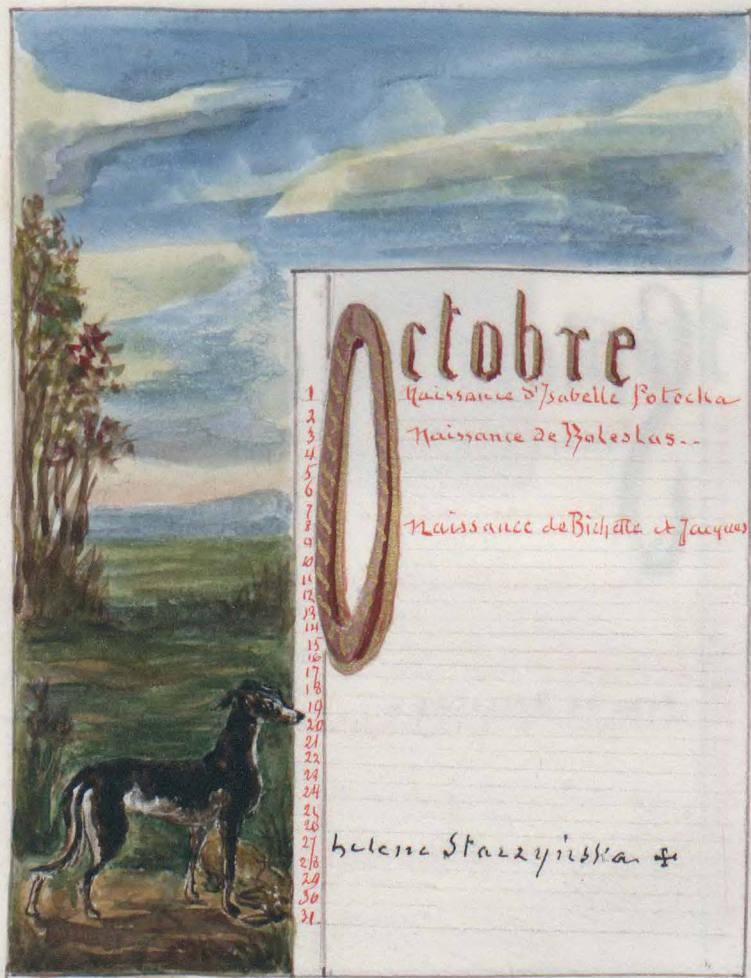 Octobre
1 Naissance d'Isabelle Potocka
2
3 Naissance de Boleslas..
4
5
6
7
8 Naissance de Bichette et Jacques
9
10
11
12
13
14
15
16
17
18
19
20
21
22
23
24
25
26
27 helene Starzyńska
28
29
30
31